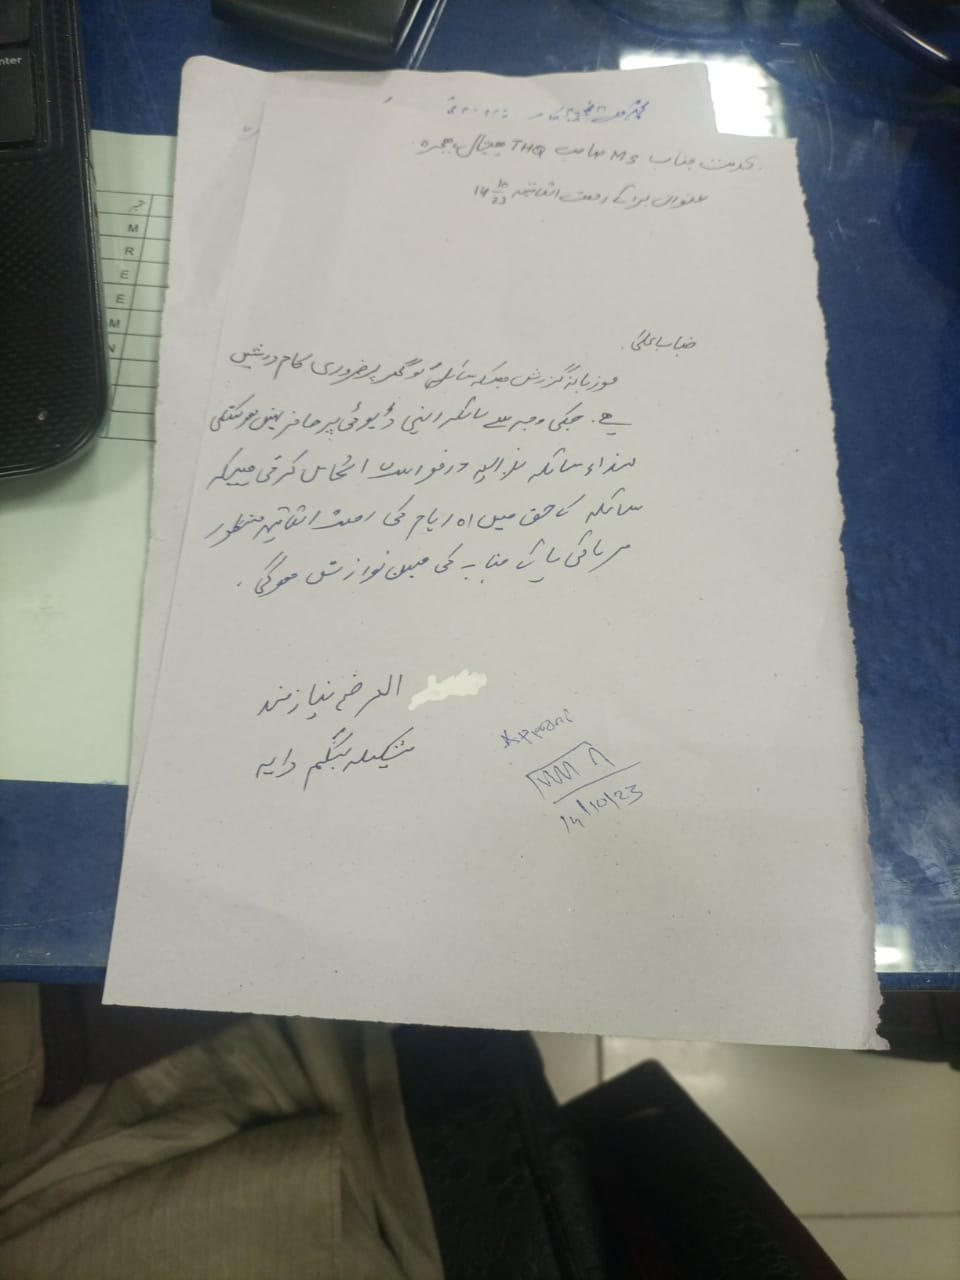 بخدمت جناب MS صاحب THQ ہسپتال ہجرہ
عنوان برائے رخصت اتفاقیہ 14 10/23
جناب عالی
موزبانہ گزارش ہیکہ سائلہ کو گھر پر ضروری کام درپیش
ہے۔ جسکی وجہ سے سائلہ اپنی ڈیوٹی پر حاضر نہیں ہو سکتی
لہذا سائلہ بذریعہ درخواست التماس کرتی ہیکہ
سائلہ کے حق میں ایام کی رخصت اتفاقیہ منظور
فرمائی جائے جناب کی عین نوازش ہوگی۔
العارضہ نیازمند
شکیلہ بیگم دایہ
14/10/23
enter
M
R
E
E
M
N